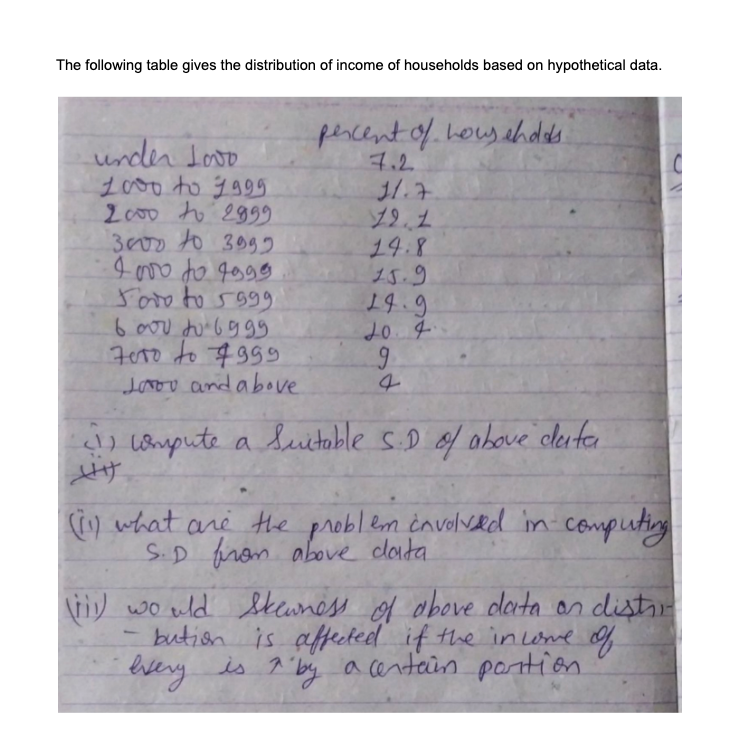 The following table gives the distribution of income of households based on hypothetical data.
percent of households
under 1000 7.2
1000 to 1999 11.7
2000 to 2999 12.1
3000 to 3999 14.8
4000 to 4999 15.9
5000 to 5999 14.9
6000 to 6999 10.4
7000 to 7999 9
10000 and above 4
(i) compute a suitable S.D of above data
(ii) what are the problem involved in computing
S.D from above data
(iii) would skewness of above data on distri-
- bution is affected if the income of
every is ↑ by a certain portion